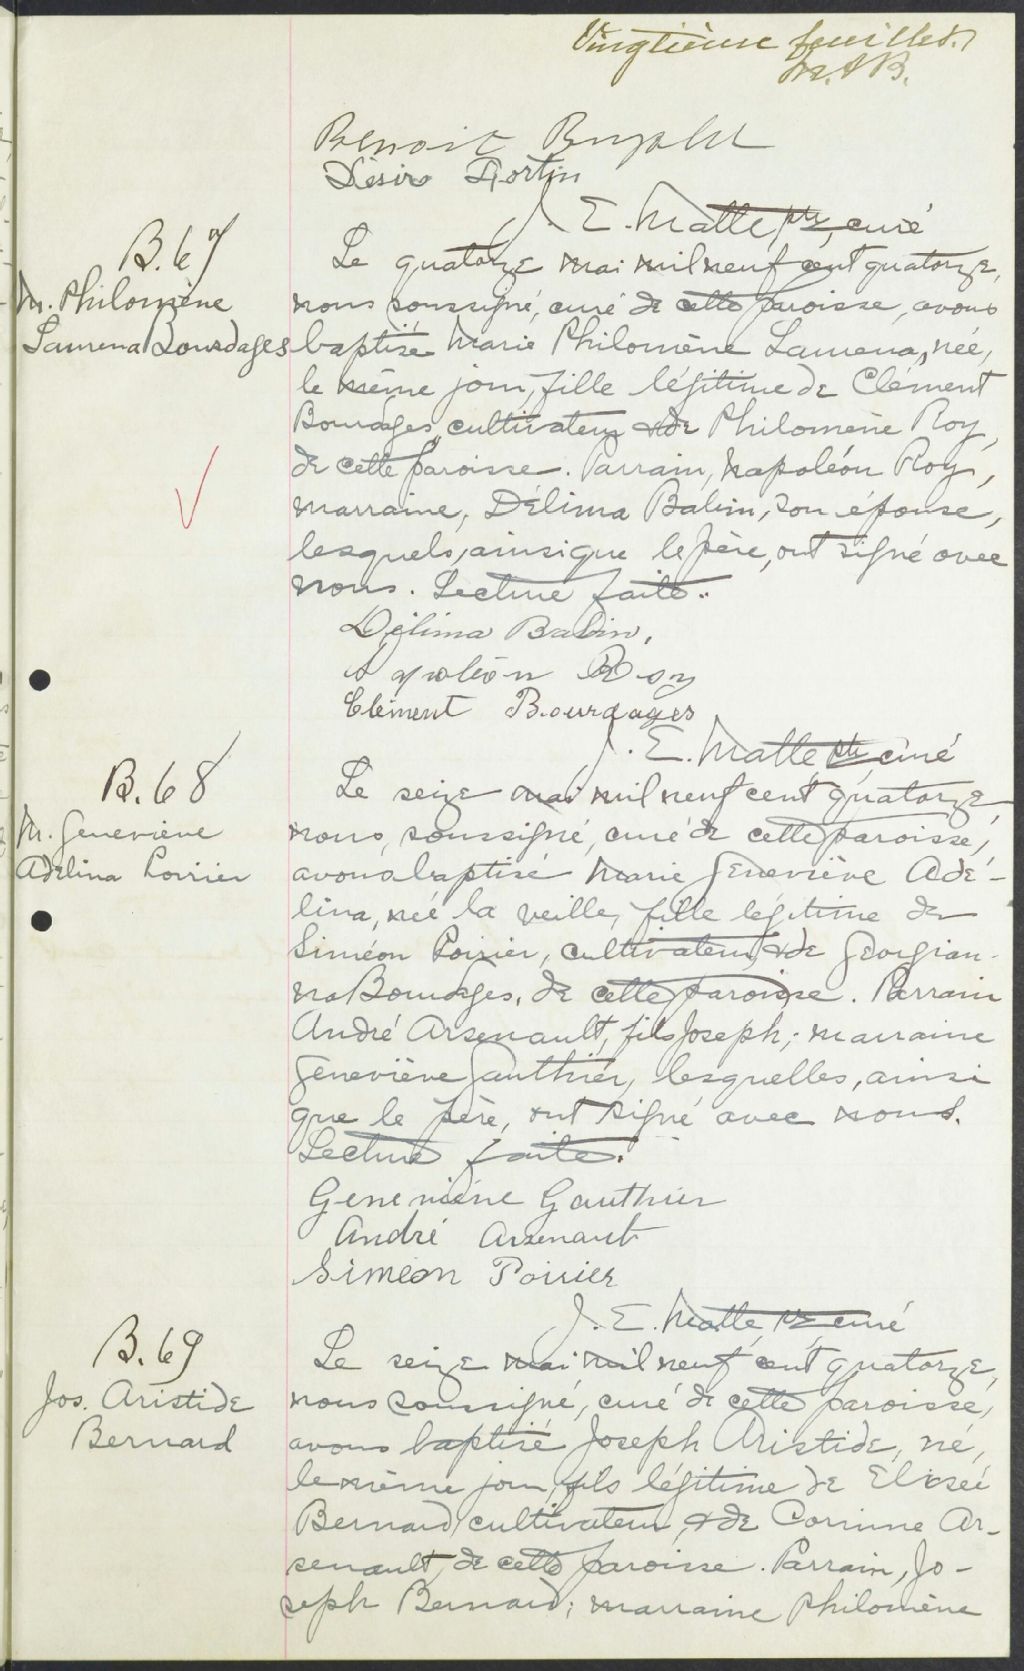 Vingtième feuillet.
Benoit
Désiré Fortin
J. E. Matte ptre, curé
B. 67
M. Philomène
Laurena Bourdages
Le quatorze mai mil neuf cent quatorze,
nous soussigné, curé de cette paroisse, avons
baptisé Marie Philomène Laurena, née,
le même jour, fille légitime de Clément
Bourdages, cultivateur & de Philomène Roy,
de cette paroisse. Parrain, Napoléon Roy,
marraine, Délima Babin, son épouse,
lesquels, ainsi que le père, ont signé avec
nous. Lecture faite.
Délima Babin,
Napoléon Roy
Clément Bourdages
J. E. Matte ptr curé
B. 68
M. Geneviève
Adelina Poirier
Le seize mai mil neuf cent quatorze,
nous, soussigné, curé de cette paroisse,
avons baptisé Marie Geneviève Adé-
lina, née la veille, fille légitime de
Siméon Poirier, cultivateur, & de Georgian-
na Bourdages, de cette paroisse. Parrain
André Arsenault, fils Joseph; marraine
Geneviève Gauthier, lesquelles, ainsi
que le père, ont signé avec nous.
Lecture faite.
Geneviène Gauthier
André Arsenault
Siméon Poirier
J. E. Matte ptr curé
B. 69
Jos. Aristide
Bernard
Le seize mai mil neuf cent quatorze,
nous soussigné, curé de cette paroisse,
avons baptisé Joseph Aristide, né,
le même jour, fils légitime de Elisée
Bernard, cultivateur, & de Corinne Ar-
senault, de cette paroisse. Parrain, Jo-
seph Bernard; marraine Philomène